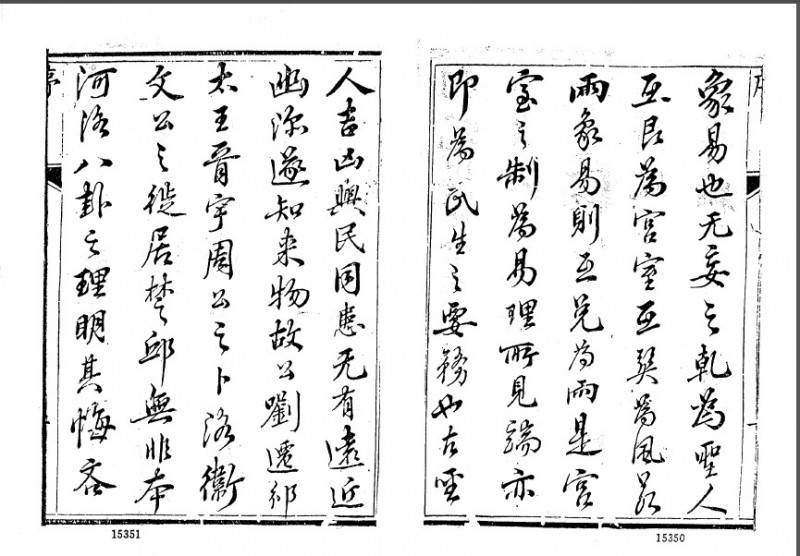 序
象易也无妄之乾為聖人
互艮為宮室互巽為風若
兩象易則互兌為雨是宮
室之制為易理所見端亦
即為民生之要務也古聖
15350
人吉凶與民同患无有遠近
幽深遂知来物故公劉遷邠
太王胥宇周公之卜洛衞
文公之徙居楚邱無非本
河洛八卦之理明其悔吝
序
15351